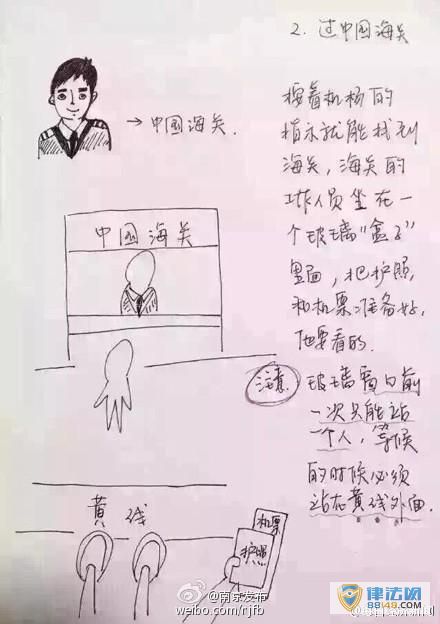 2. 过中国海关
→中国海关.
按着机场的
指示就能找到
海关,海关的
工作人员坐在一
个玻璃“盒子”
里面,把护照,
和机票准备好,
他要看的.
中国海关
注意
玻璃窗口前
一次只能站
一个人,等候
的时候必须
站在黄线外面.
黄线
机票
护照
@南京发布
weibo.com/njfb
律法网
88148.COM